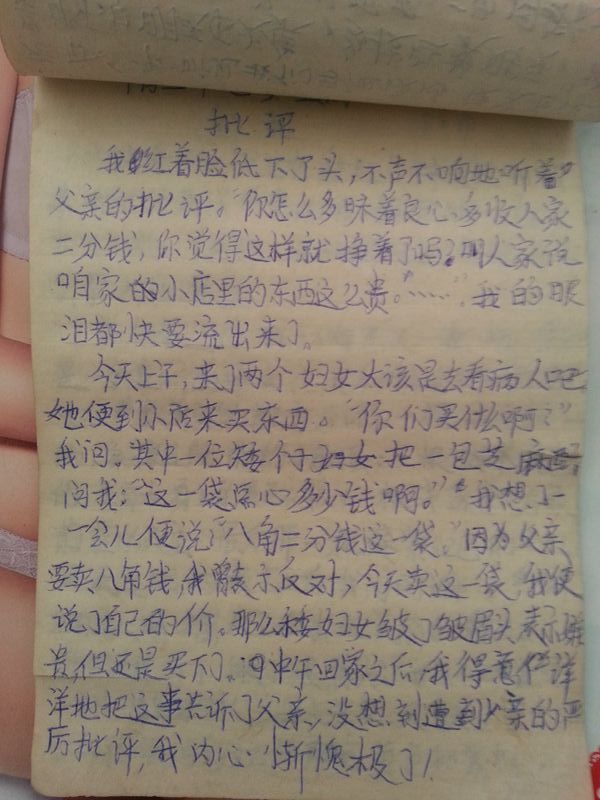 批评
我红着脸低下了头，不声不响地听着
父亲的批评。“你怎么多昧着良心多收人家
二分钱，你觉得这样就挣着了吗？叫人家说
咱家的小店里的东西这么贵。”……”我的眼
泪都快要流出来了。
今天上午，来了两个妇女大该是去看病人吧
她便到小店来买东西。“你们买什么啊？”
我问。其中一位矮个子妇女把一包芝麻
问我：“这一袋点心多少钱啊。”我想了一
一会儿便说“八角二分钱这一袋。”因为父亲
要卖八角钱，我曾表示反对，今天卖这一袋，我便
说了自己的价。那么妇女皱了皱眉头表示嫌
贵，但还是买下了。中午回家之后，我得意洋洋
洋地把这事告诉了父亲，没想到遭到父亲的严
厉批评，我内心惭愧极了！